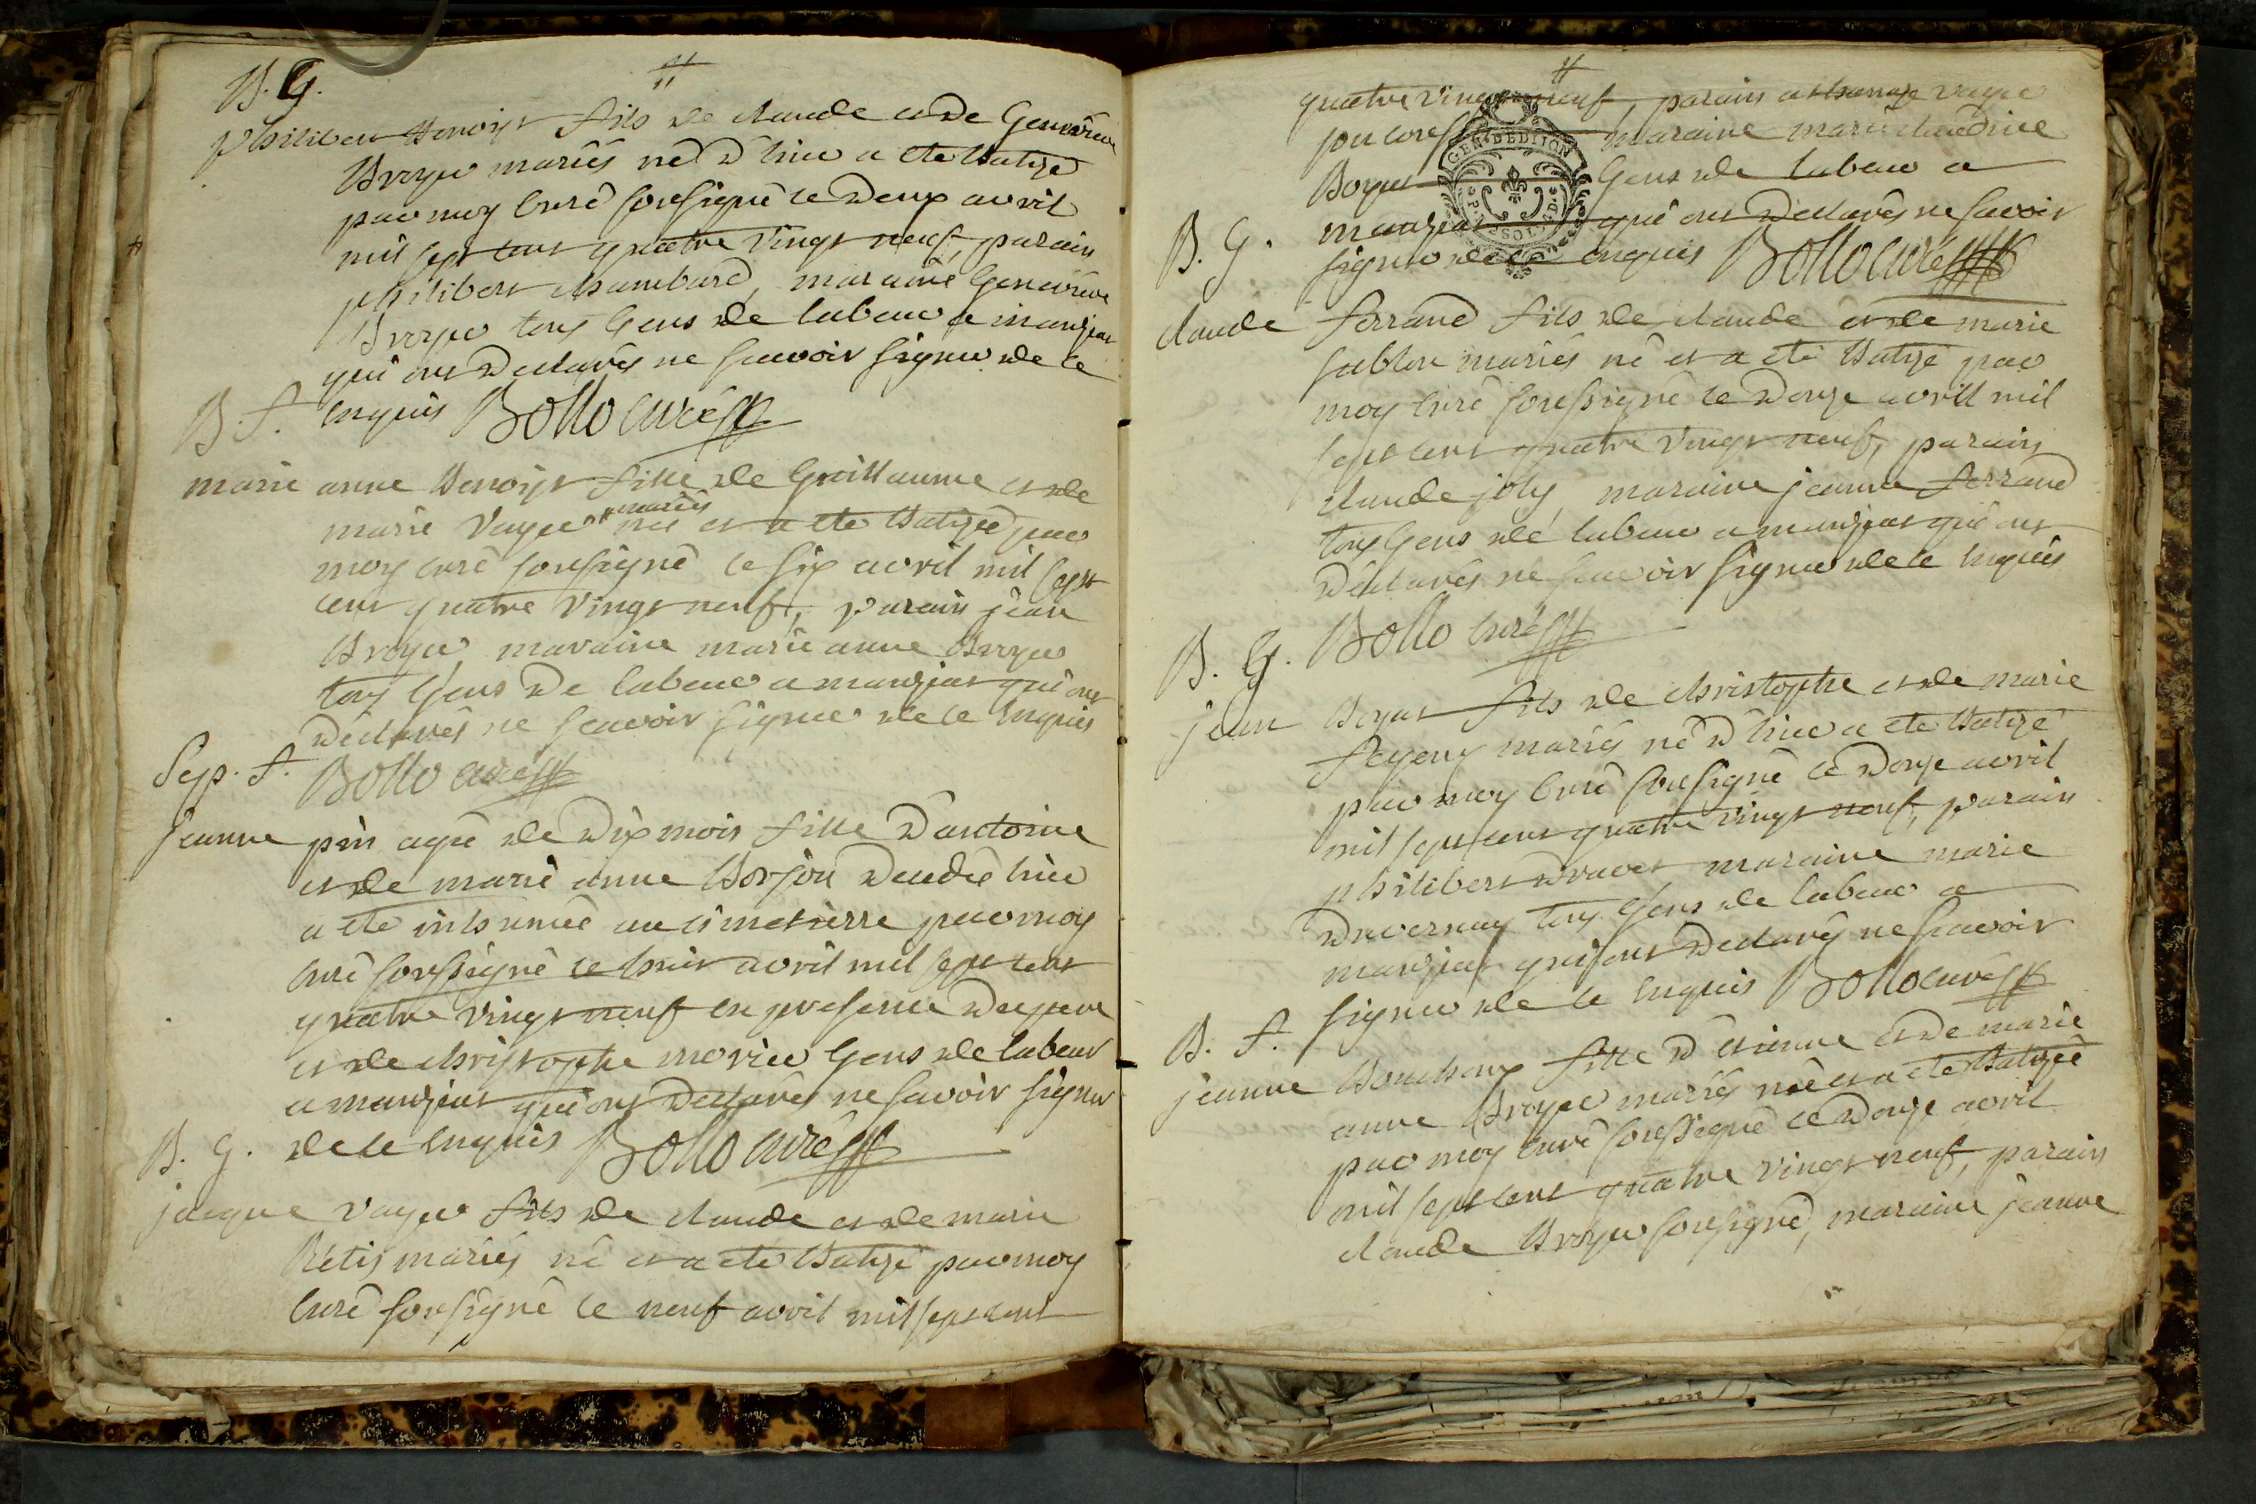 B. G.
philibert Benoist fils de claude et de Genevieve
Broyer mariés né d'hier a ete batizé
par moy curé sousigné le deux avril
mil sept cent quatre vingt neuf, parain
philibert chambard, maraine Genevieve
Broyer tous Gens de labeur a manziat
qui ont declarés ne scavoir signer de ce
enquis Bollo curé
B. f.
marie anne Benoist fille de Guillaume et de
marie Vayer mariés née et a ete batizée par
moy curé sousigné le six avril mil sept
cent quatre vingt neuf, parain jean
Broyer maraine marie anne Broyer
tous Gens de labeur a manziat qui ont
declarés ne scavoir signer de ce enquis
Sep. f. Bollo curé
jeanne pin agée de dix mois fille d'antoine
et de marie anne Borjon decedée hier
a ete inhumée au cimetierre par moy
curé sousigné le huit avril mil sept cent
quatre vingt neuf en presence du pere
et de christophe morier Gens de labeur
a manziat qui ont declarés ne savoir signer
B. G. de ce enquis Bollo curé
jacque Vayer fils de claude et de marie
Retis mariés né et a ete batizé par moy
curé sousigné le neuf avril mil sept cent
quatre vingt neuf, parain vayer
maraine marie
Boyat Gens de labeur a
manziat qui ont declarés ne savoir
B. G. signer de ce enquis Bollo curé
GEN. DE DIJON
claude ferrand fils de claude et de marie
sablon mariés né et a ete batizé par
moy curé sousigné le douze avril mil
sept cent quatre vingt neuf, parain
claude joly, maraine jeanne ferrand
tous Gens de labeur a manziat qui ont
declarés ne scavoir signer de ce enquis
B. G. Bollo curé
jean Boyat fils de christophe et de marie
feyeux mariés né d'hier a ete batizé
par moy curé sousigné le douze avril
mil sept cent quatre vingt neuf, parain
philibert druet maraine marie
duvernay tous Gens de labeur a
manziat qui ont declarés ne scavoir
signer de ce enquis Bollo curé
B. f.
jeanne Bouchoux fille d'etienne et de marie
anne Broyer mariés née et a ete batizée
par moy curé sousigné le douze avril
mil sept cent quatre vingt neuf, parain
claude Broyer sousigné, maraine jeanne